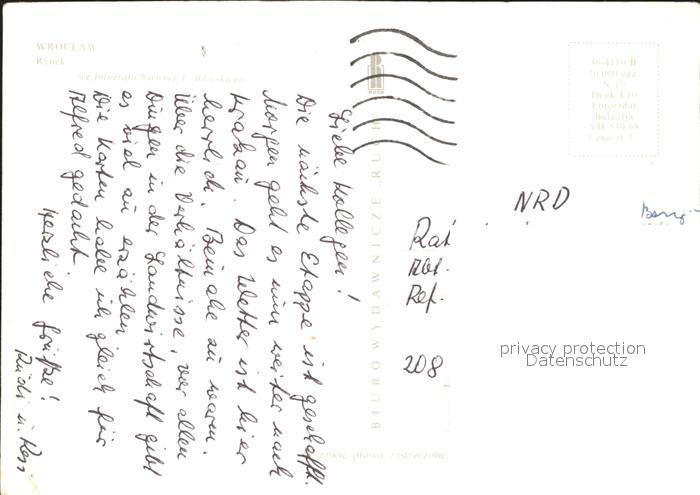 WROCŁAW
Rynek
we fotografii barwnej T. Biliński
Liebe Kollegen!
Die nächste Etappe ist geschafft.
Morgen geht es nun weiter nach
Krakau. Das Wetter ist hier
herrlich. Beinahe zu warm.
Über die Verhältnisse, vor allen
Dingen in der Landwirtschaft gibt
es viel zu erzählen.
Die Karten habe ich gleich für
Alfred gedacht
Herzliche Grüße!
Rudi u.
RUCH
BIURO WYDAWNICZE RUCH
prawa zastrzeżone
36-4110/B
N 10
Druk F10
Fotoizdat
Bulgaria
VII 530/68
Cena zł
NRD
Rat
Abt.
Ref.
208
privacy protection
Datenschutz